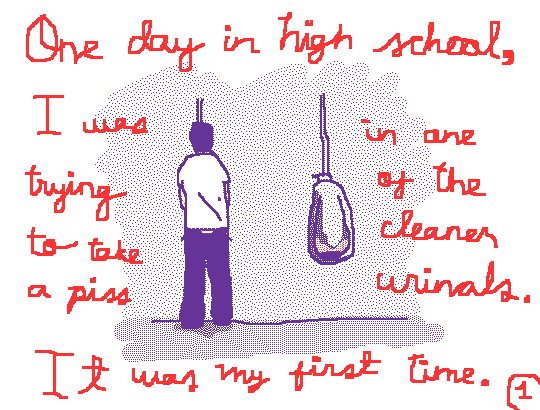 One day in high school,
I was
trying
to take
a piss
in one
of the
cleaner
urinals.
It was my first time.
1